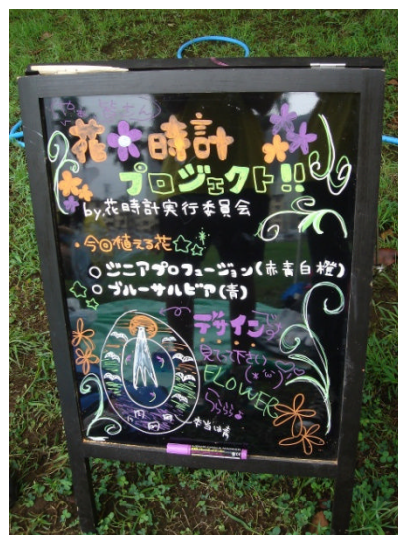 花時計
プロジェクト!!
by.花時計実行委員会
・今回植える花☆☆
○ジニアプロフュージョン(赤黄白橙)
○ブルーサルビア(青)
デザイン
見て下さい
FLOWER
本当は青